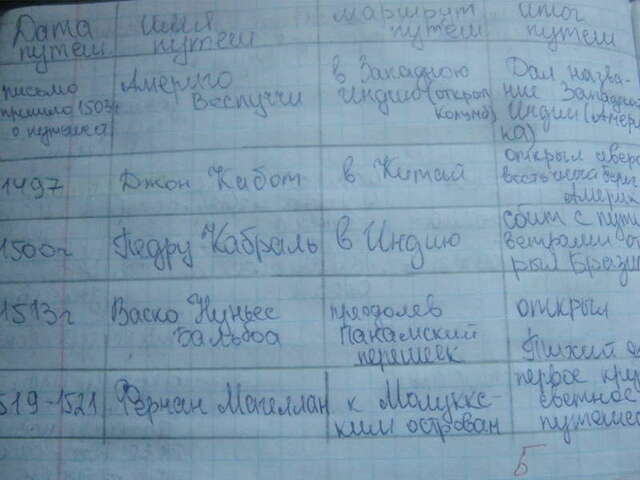 Дата путеш
имя путеш
маршрут путеш
итог путеш
письмо
пришло 1503г
о путешка
Америго
Веспуччи
в Западную
Индию (открыл
Колумб)
Дал назва-
ние Западной
Индии (Амери
ка)
1497
Джон Кабот
в Китай
открыл
Америк
1500г
Педру Кабраль
в Индию
сбит с пути
ветрами от
рыл Брази
1513г
Васко Нуньес
Бальбоа
преодолев
Панамский
перешеек
открыл
Тихий
519-1521
Фернан Магеллан
к Молуккс-
ким островам
первое круг
светное
путешес
5